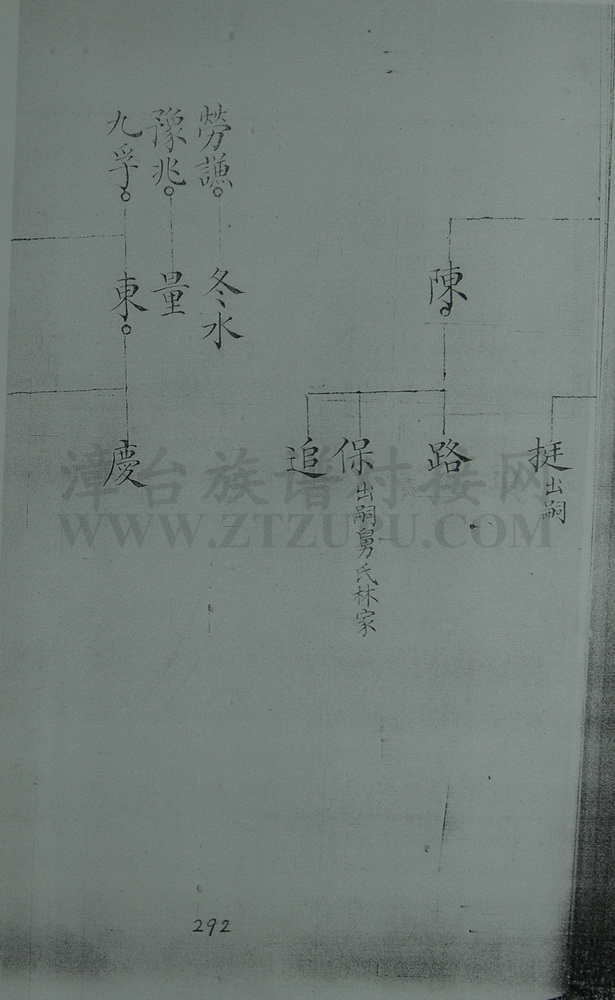 勞謙
豫兆
九孚
陳
冬水
量
東
挺出嗣
路
保出嗣舅氏林家
追
慶
漳台族谱对接网
WWW.ZTZUPU.COM
292